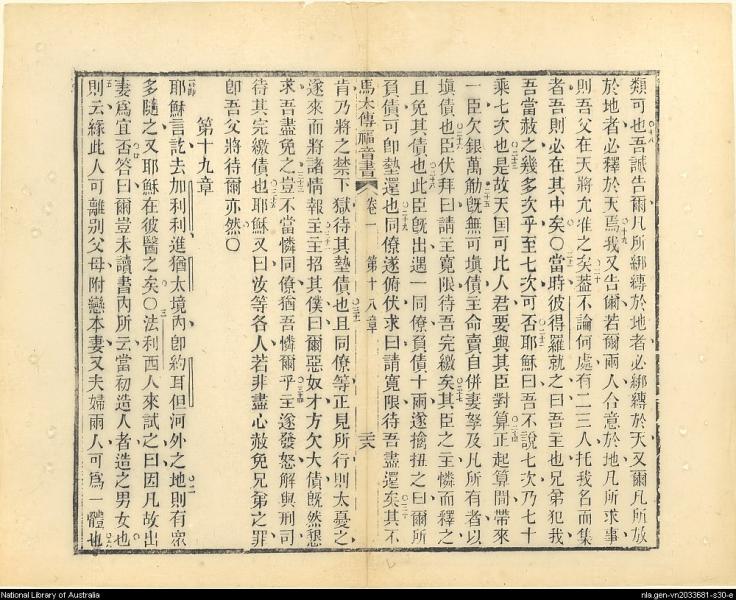 類可也吾誠告爾凡所綁縛於地者必綁縛於天又爾凡所放
於地者必釋於天焉我又告爾若爾兩人合意於地凡所求事
則吾父在天將允准之矣蓋不論何處有二三人托我名而集
者吾則必在其中矣○當時彼得羅就之曰吾主也兄弟犯我
吾當赦之幾多次乎至七次可否耶穌曰吾不說七次乃七十
乘七次也是故天国可比人君要與其臣對算正起算間帶來
一臣欠銀萬觔既無可塡債主命賣自併妻孥及凡所有者以
塡債也臣伏拜曰請主寬限待吾完繳矣其臣之主憐而釋之
且免其債也此臣既出遇一同僚負債十兩遂擒扭之曰爾所
負債可卽墊還也同僚遂俯伏求曰請寬限待吾盡還矣其不
馬太傳福音書 卷一 第十八章 二六
肯乃將之禁下獄待其墊債也且同僚等正見所行則太憂之
遂來而將諸情報主主招其僕曰爾惡奴才方欠大債既然懇
求吾盡免之豈不當憐同僚猶吾憐爾乎主遂發怒解與刑司
待其完繳債也耶穌又曰汝等各人若非盡心赦免兄弟之罪
卽吾父將待爾亦然○
第十九章
耶穌言訖去加利利進猶太境內卽約耳但河外之地則有眾
多隨之又耶穌在彼醫之矣○法利西人來試之曰因凡故出
妻爲宜否答曰爾豈未讀書內所云當初造人者造之男女也
則云緣此人可離别父母附戀本妻又夫婦兩人可爲一體也
National Library of Australia
nla.gen-vn2033681-s30-e